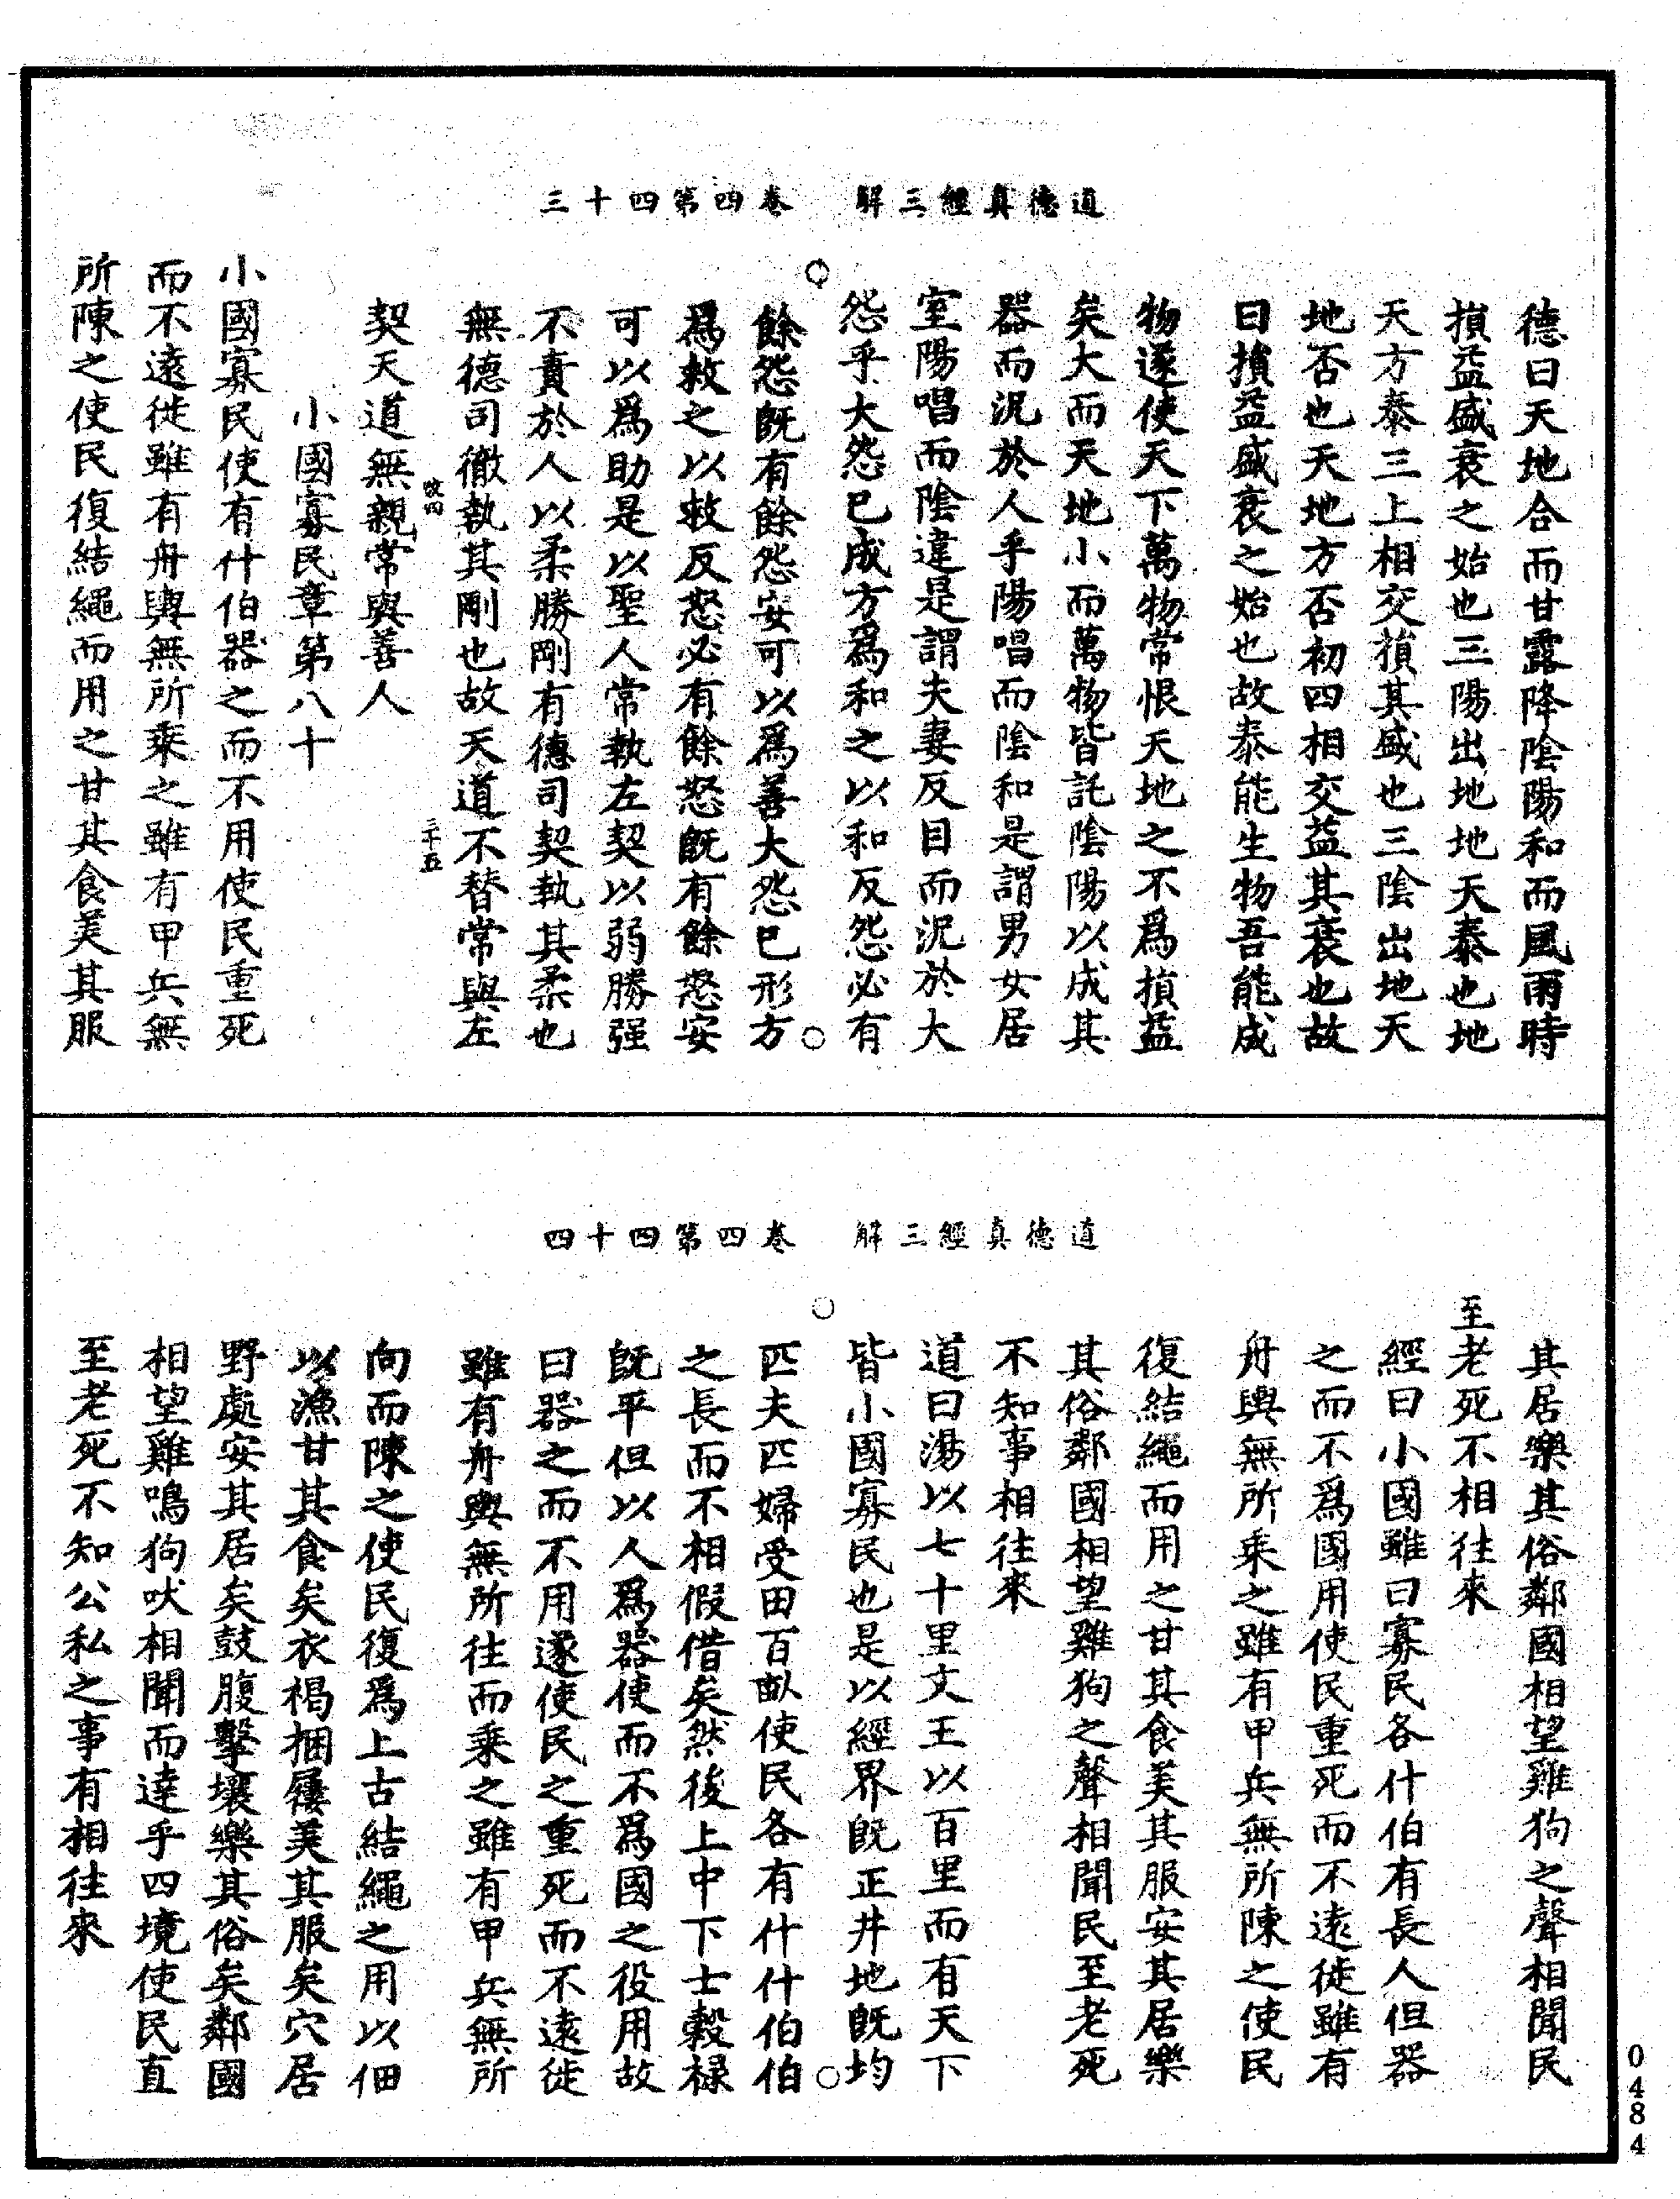 道德真經三解　卷四第四十三
德曰天地合而甘露降陰陽和而風雨時
損益盛衰之始也三陽出地地天泰也地
天方泰三上相交損其盛也三陰出地天
地否也天地方否初四相交益其衰也故
曰損益盛衰之始也故泰能生物吾能成
物遂使天下萬物常恨天地之不爲損益
矣大而天地小而萬物皆託陰陽以成其
器而況於人乎陽唱而陰和是謂男女居
室陽唱而陰違是謂夫妻反目而況於大
怨乎大怨已成方爲和之以和反怨必有
餘怨既有餘怨安可以爲善大怨已形方
爲救之以救反怒必有餘怒既有餘怒安
可以爲助是以聖人常執左契以弱勝强
不責於人以柔勝剛有德司契執其柔也
無德司徹執其剛也故天道不替常與左
契天道無親常與善人
效四
三十五
小國寡民章第八十
小國寡民使有什伯器之而不用使民重死
而不遠徙雖有舟輿無所乘之雖有甲兵無
所陳之使民復結繩而用之甘其食美其服
道德真經三解　卷四第四十四
其居樂其俗鄰國相望雞狗之聲相聞民
至老死不相往來
經曰小國雖曰寡民各什伯有長人但器
之而不爲國用使民重死而不遠徙雖有
舟輿無所乘之雖有甲兵無所陳之使民
復結繩而用之甘其食美其服安其居樂
其俗鄰國相望雞狗之聲相聞民至老死
不知事相往來
道曰湯以七十里文王以百里而有天下
皆小國寡民也是以經界既正井地既均
匹夫匹婦受田百畝使民各有什什伯伯
之長而不相假借矣然後上中下士穀祿
既平但以人爲器使而不爲國之役用故
曰器之而不用遂使民之重死而不遠徙
雖有舟輿無所往而乘之雖有甲兵無所
向而陳之使民復爲上古結繩之用以佃
以漁甘其食矣衣褐捆屨美其服矣穴居
野處安其居矣鼓腹擊壤樂其俗矣鄰國
相望雞鳴狗吠相聞而達乎四境使民直
至老死不知公私之事有相往來
0484